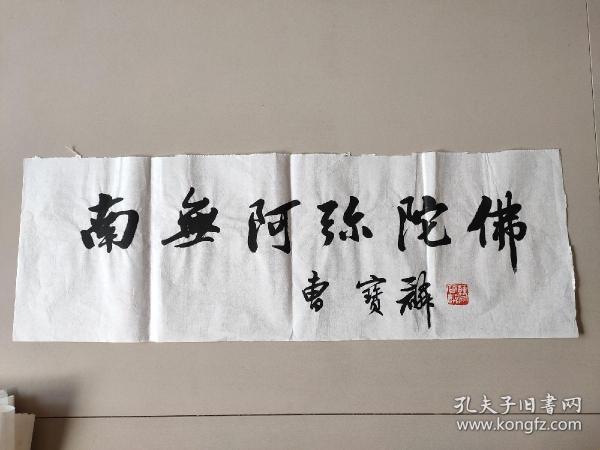 南無阿弥陀佛
曹寶麟
孔夫子旧書网
www.kongfz.com